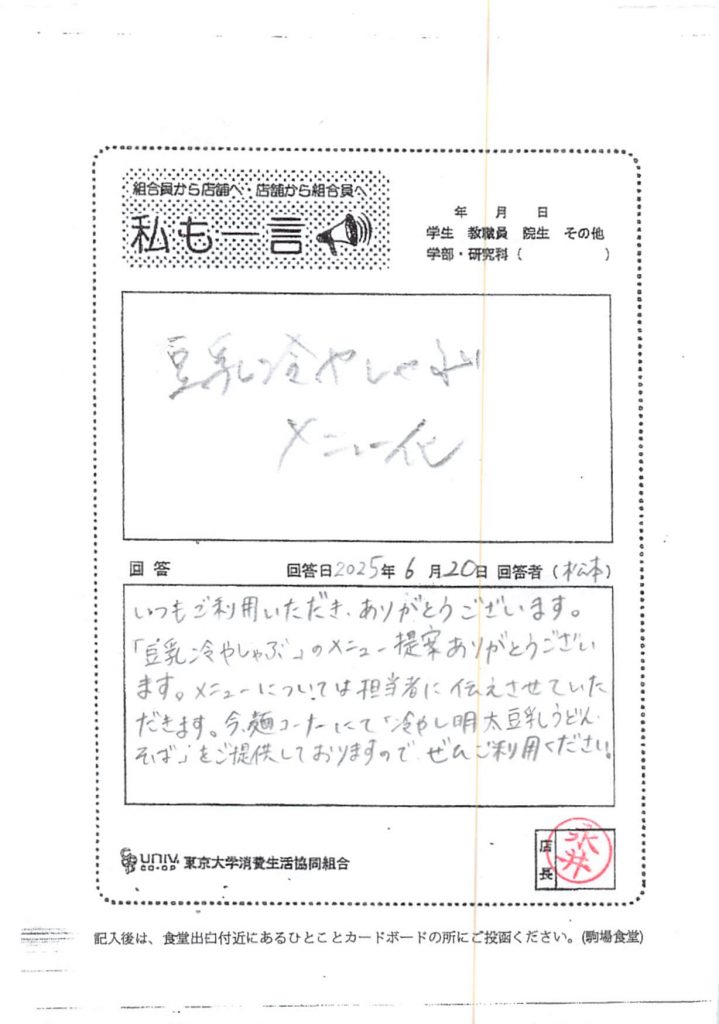 組合員から店舗へ・店舗から組合員へ
私も一言
年 月 日
学生 教職員 院生 その他
学部・研究科 ( )
豆乳冷やしゃぶ
メニュー化
回答 回答日2025年 6月20日 回答者 (松本)
いつもご利用いただき、ありがとうございます。
「豆乳冷やしゃぶ」のメニュー提案ありがとうござい
ます。メニューについては担当者に伝えさせていた
だきます。今、麺コーナーにて「冷やし明太豆乳うどん・
そば」をご提供しておりますので、ぜひご利用ください。
UNIV. CO-OP 東京大学消費生活協同組合
店長 永井
記入後は、食堂出口付近にあるひとことカードボードの所にご投函ください。(駒場食堂)